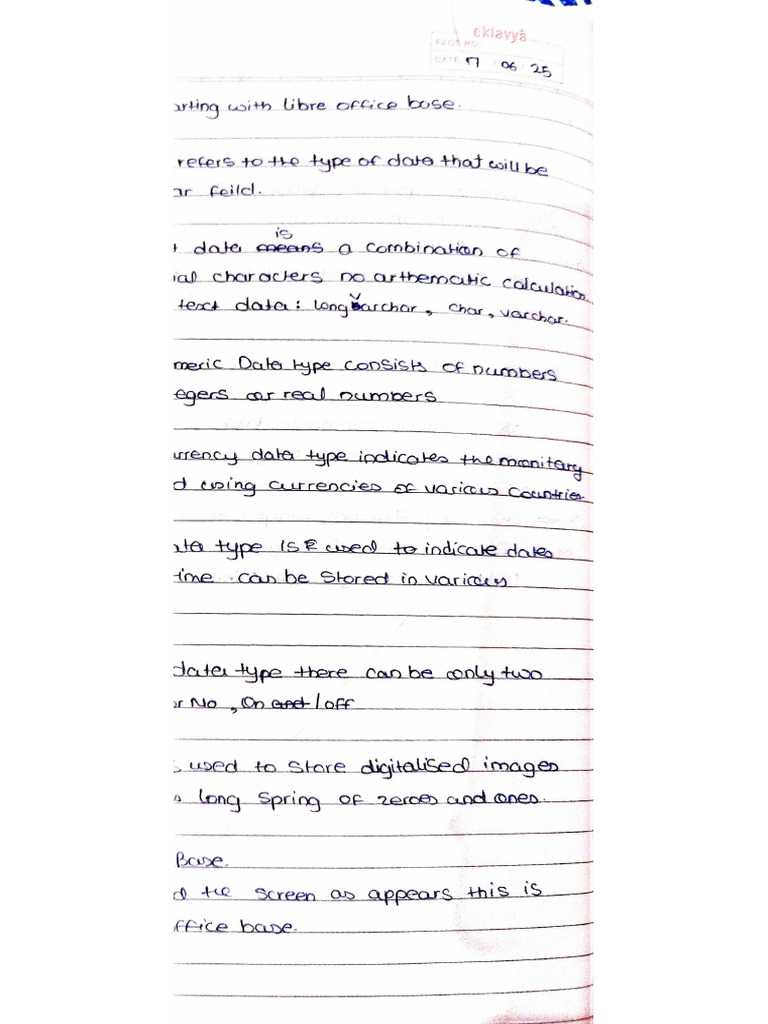 eklavyā
PAGE NO
DATE 17 06 25
arting with Libre office base.
refers to the type of data that will be
ar feild.
is
t data means a combination of
ial characters no arthematic calculation
text data: longvarchar, char, varchar.
meric Data type consists of numbers
egers or real numbers
urrency data type indicates the monitary
d using currencies of various countries
ata type is used to indicate dates
time can be stored in various
data type there can be only two
or No, On and / off
s used to store digitalised images
s long spring of zeroes and ones.
Base.
d the screen as appears this is
ffice base.